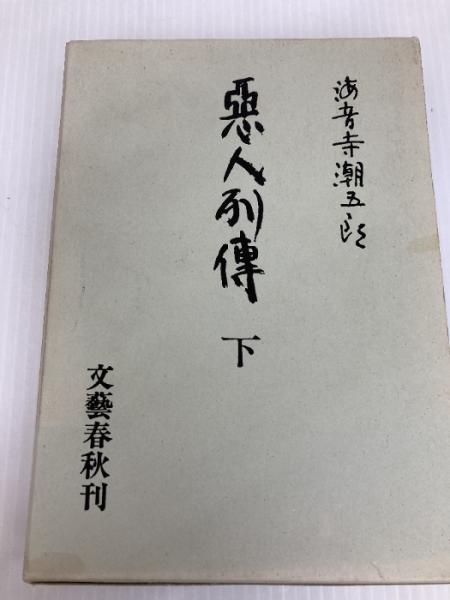 海音寺潮五郎
惡人列傳
下
文藝春秋刊